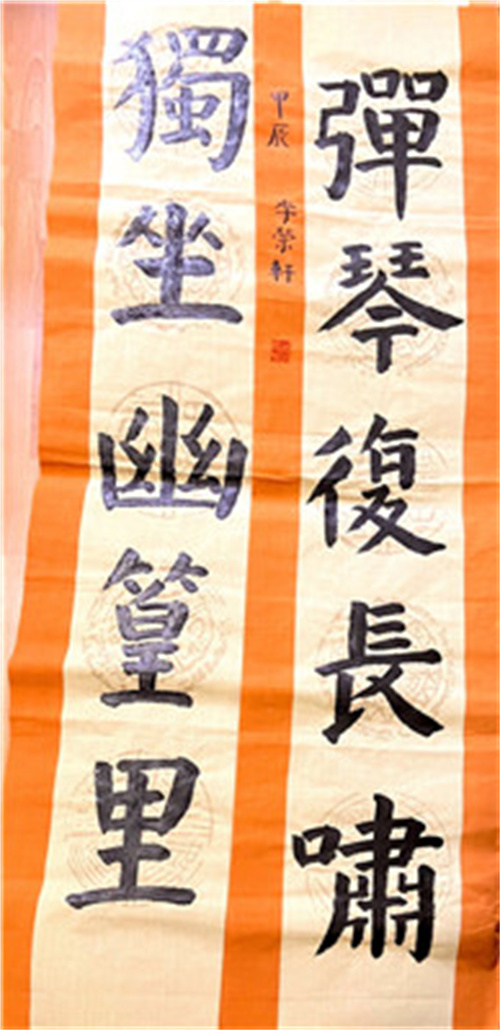 獨坐幽篁里
彈琴復長嘯
甲辰 李荣軒